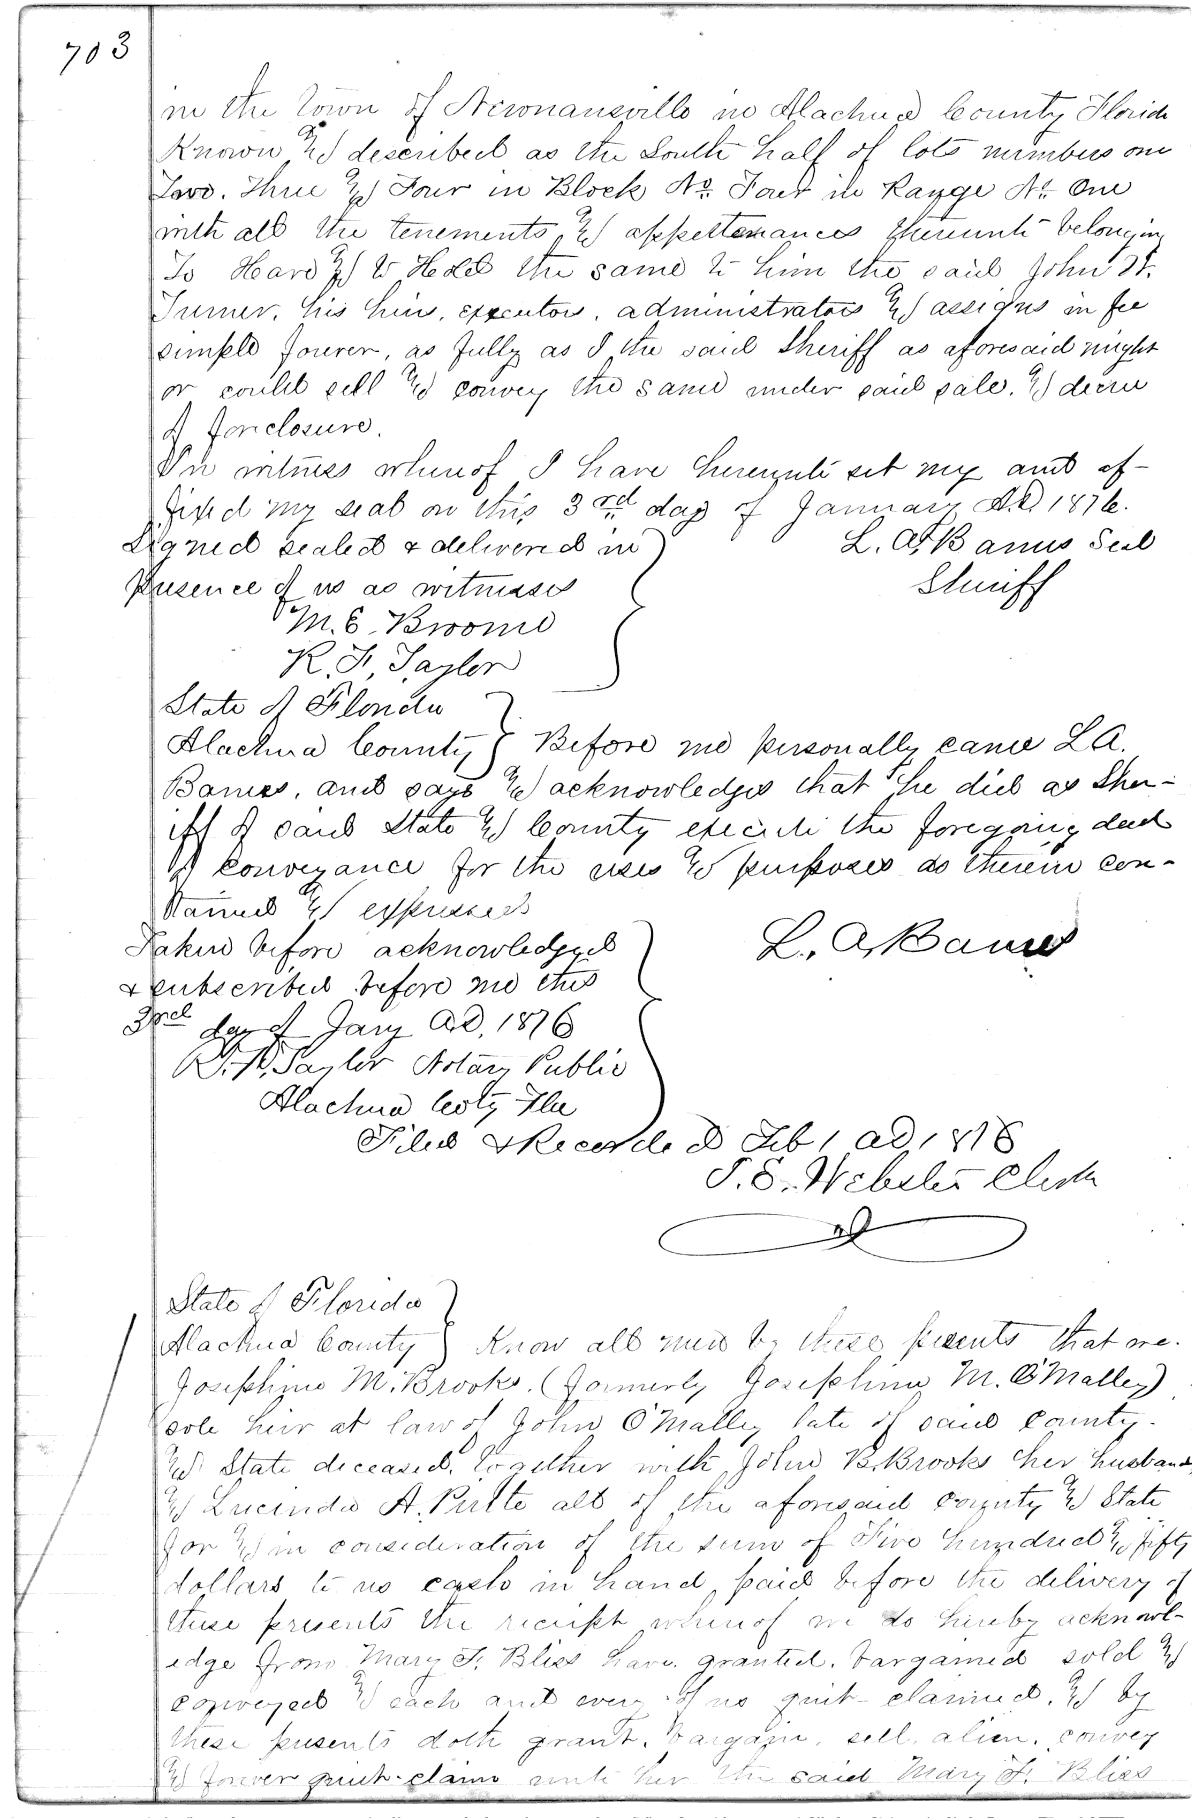 703
in the town of Newnansville in Alachua County Florida
Known & described as the South half of lots numbers one
Two. Three & Four in Block No. Four in Range No. One
with all the tenements & appettenances thereunto belonging
To Have & to Hold the same to him the said John W.
Turner, his heirs, executors, administrators & assigns in fee
simple forever, as fully as I the said Sheriff as aforesaid might
or could sell & convey the same under said sale. & decree
of foreclosure.
In witness whereof I have hereunto set my and af-
fixed my seal on this 3rd day of January A.D. 1876.
Signed sealed & delivered in L. A. Barnes Seal
presence of us as witnesses Sheriff
M. E. Broome
R. F. Taylor
State of Florida
Alachua County } Before me personally came L A.
Barnes, and says & acknowledges that he did as Sher-
iff of said State & County execute the foregoing deed
of conveyance for the uses & purposes as therein con-
tained & expressed
Taken before acknowledged L. A. Barnes
& subscribed before me this
3rd day of Jany A.D. 1876
R. F. Taylor Notary Public
Alachua Coty Fla
Filed & Recorded Feb 1 AD, 1876
J. E. Webster Clerk
State of Florida
Alachua County } Know all men by these presents that we.
Josephine M. Brooks. (formerly Josephine M. O'Malley)
sole heir at law of John O'Malley late of said County.
& State deceased, together with John B. Brooks her husband,
& Lucinda A. Pirtte all of the aforesaid county & State
for & in consideration of the sum of Five hundred & fifty
dollars to us cash in hand paid before the delivery of
these presents the receipt whereof we do hereby acknowl-
edge from Mary F. Bliss have granted. bargained sold &
conveyed & each and every of us quit-claimed. & by
these presents doth grant. bargain, sell, alien, convey
& forever quit-claim unto her the said Mary F. Bliss